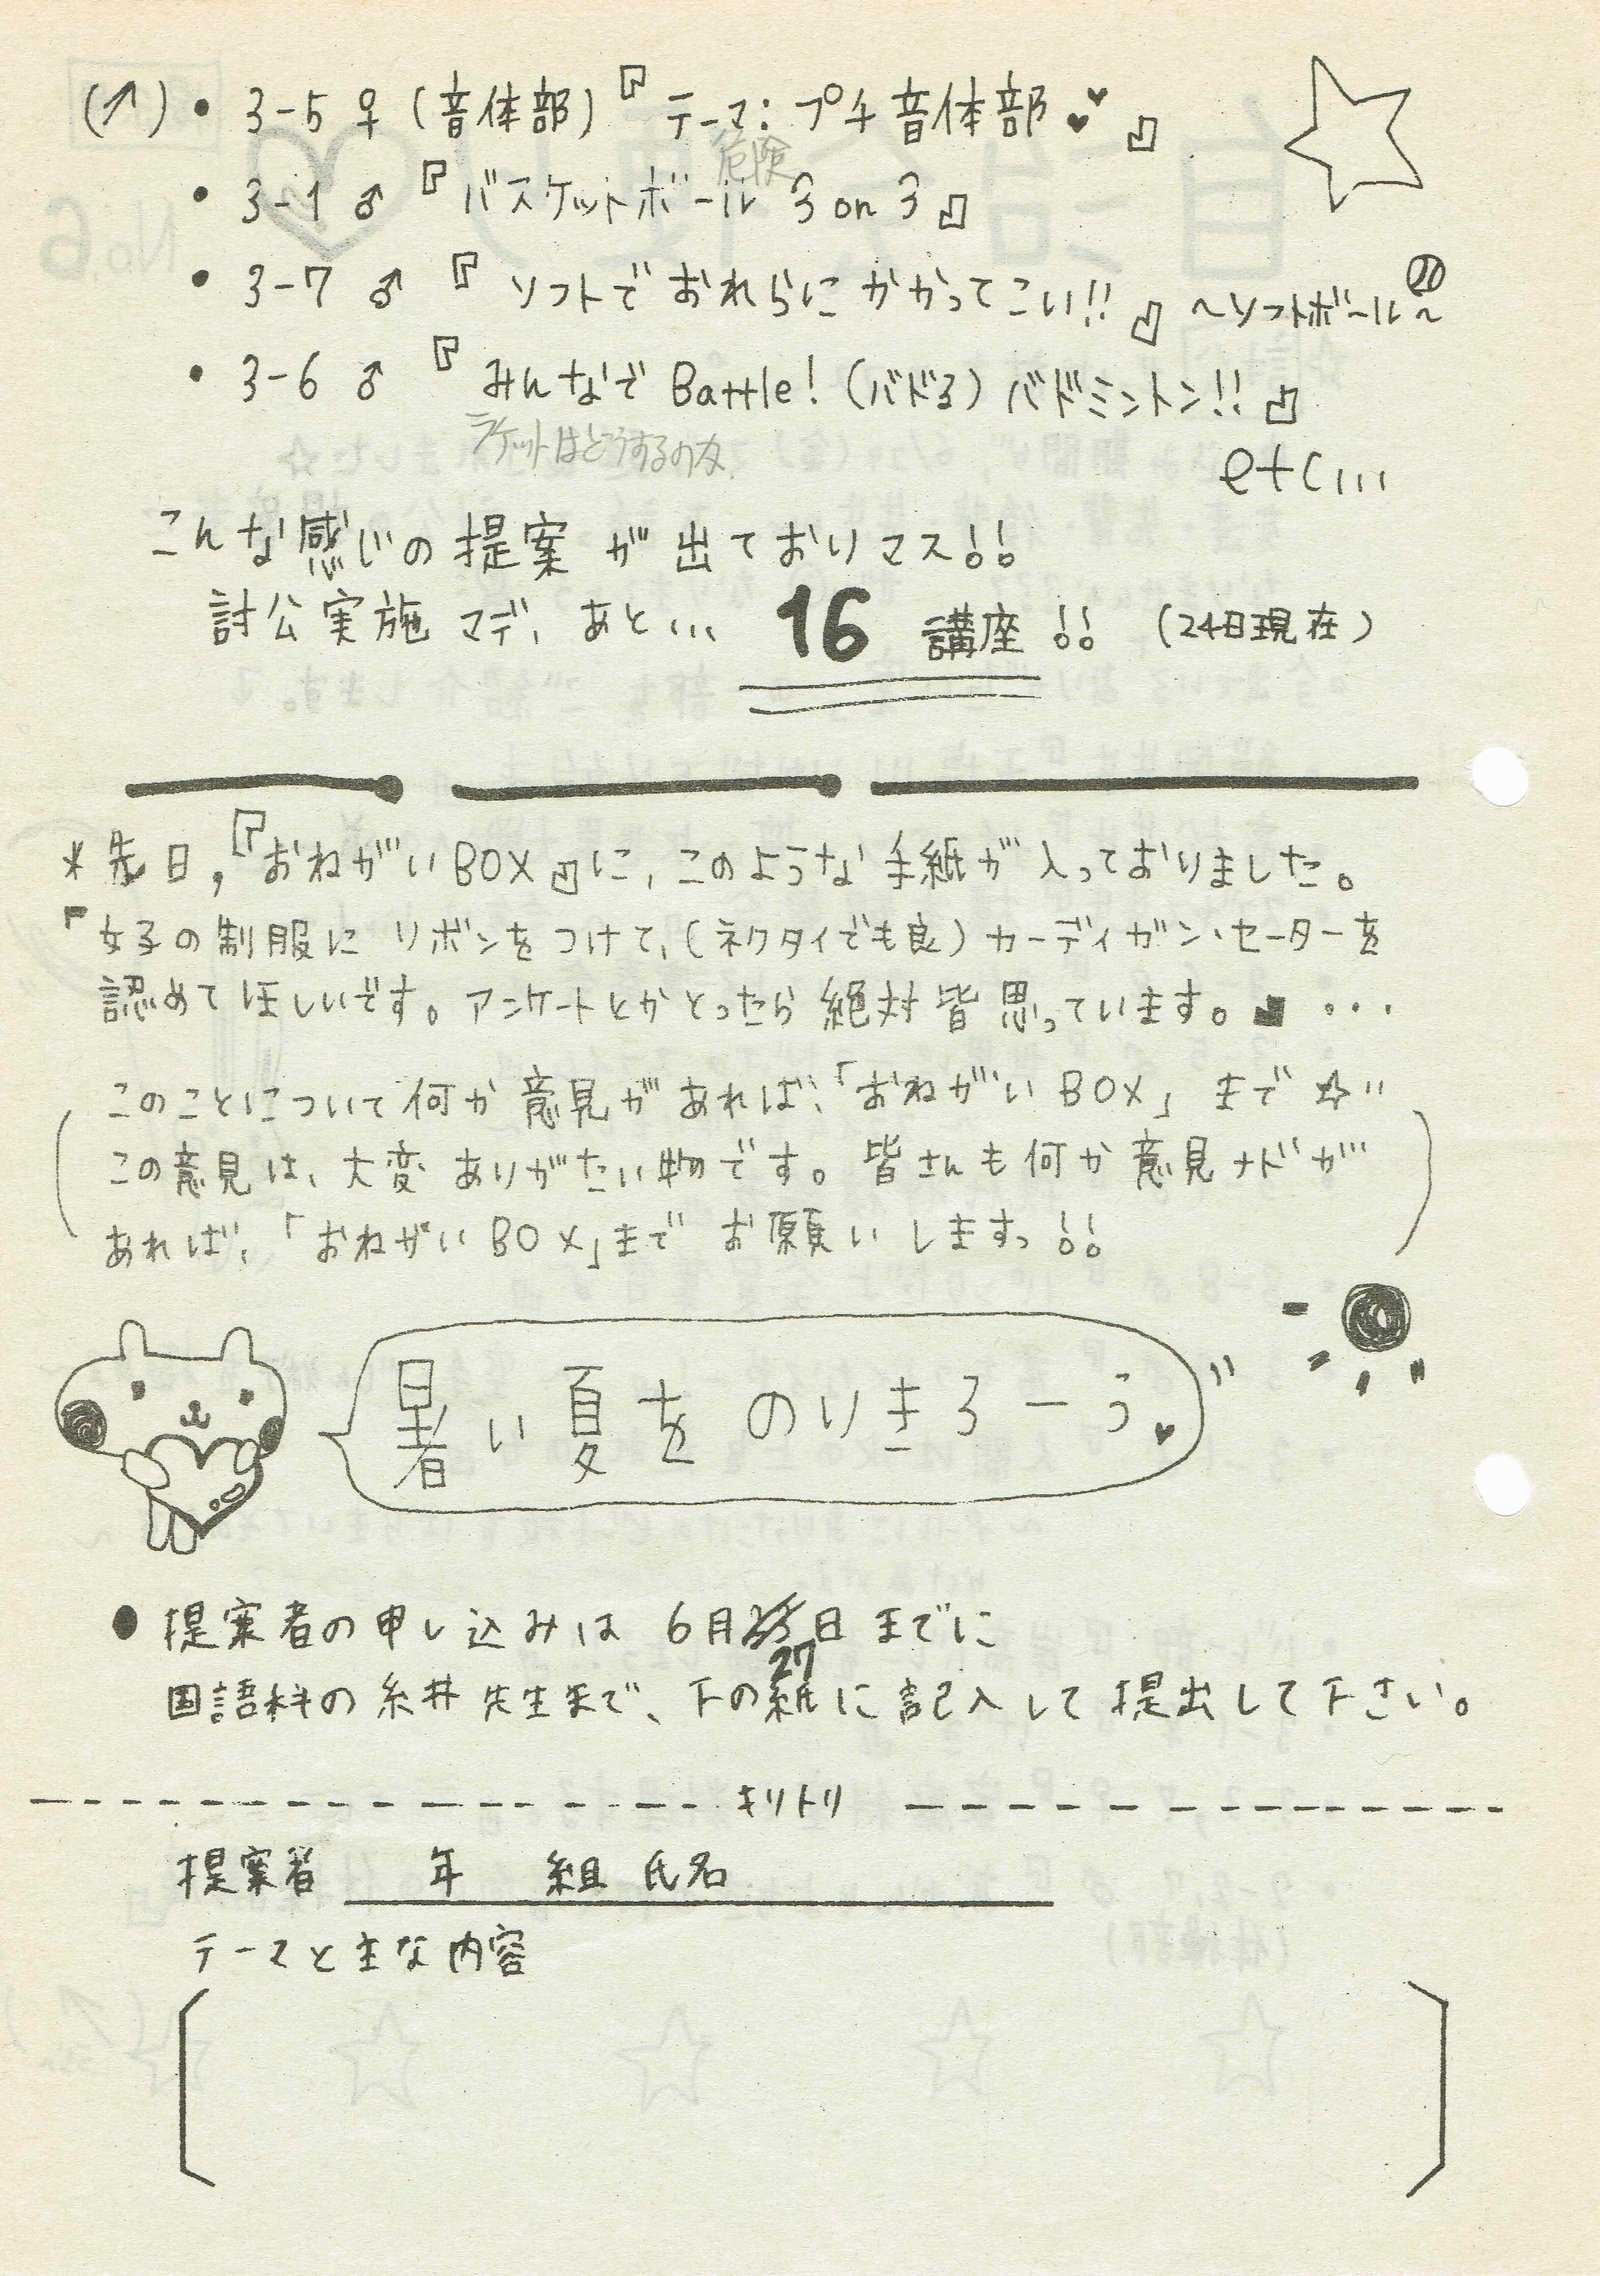 (↗)・3-5 ♀ (音体部)『テーマ:プチ音体部♥』
危険
・3-1 ♂『バスケットボール 3 on 3』
・3-7 ♂『ソフトでおれらにかかってこい!!』~ソフトボール~
・3-6 ♂『みんなで Battle!(バドる)バドミントン!!』
ラケットはどうするのか
etc...
こんな感じの提案が出ておりマス!!
討公実施マデ、あと... 16 講座!! (24日現在)
*先日,『おねがいBOX』に、このような手紙が入っておりました。
『女子の制服にリボンをつけて、(ネクタイでも良)カーディガン・セーターを
認めてほしいです。アンケートとかとったら絶対皆思っています。』...
このことについて何か意見があれば、「おねがいBOX」まで☆
この意見は、大変ありがたい物です。皆さんも何か意見ナドが
あれば、「おねがいBOX」までお願いしますっ!!
暑い夏をのりきろーう♥
●提案者の申し込みは6月27日までに
国語科の糸井先生まで、下の紙に記入して提出して下さい。
キリトリ
提案者 年 組 氏名
テーマと主な内容